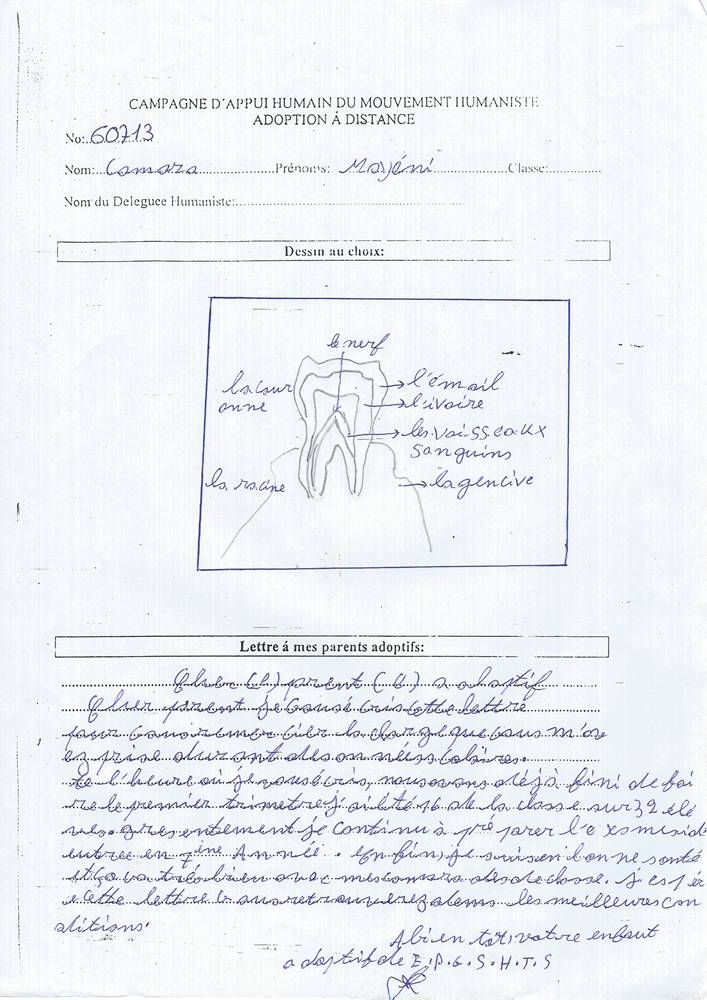 CAMPAGNE D'APPUI HUMAIN DU MOUVEMENT HUMANISTE
ADOPTION Á DISTANCE
No:.60713
Nom:..Camara..................Prénoms: Mayéni..................Classe:..............
Nom du Deleguee Humaniste:.............................................................
Dessin au choix:
le nerf
la cour
onne
l'émail
l'ivoire
les vaisseaux
sanguins
la racine
la gencive
Lettre á mes parents adoptifs:
Cher (e) parent (e) adoptif
Cher parent je vous écris cette lettre
pour vous remercier la charge que vous m'av
ez prise durant des années scolaires.
te l'heure où je vous écris, nous avons déjà fini de fai
re le premier trimetre j'ai été 16 de la classe sur 32 élé
ves. présentement je continu à pré parer l'examen d
entrée en 7ème Année. En fin, je suis en bonne santé
et ça va très bien avec mes camarades de classe. j'espér
e cette lettre vous retrouverez dans les meilleures con
ditions.
A bien tôt, votre enfant
adoptif de E.P.G.S.H.T.S